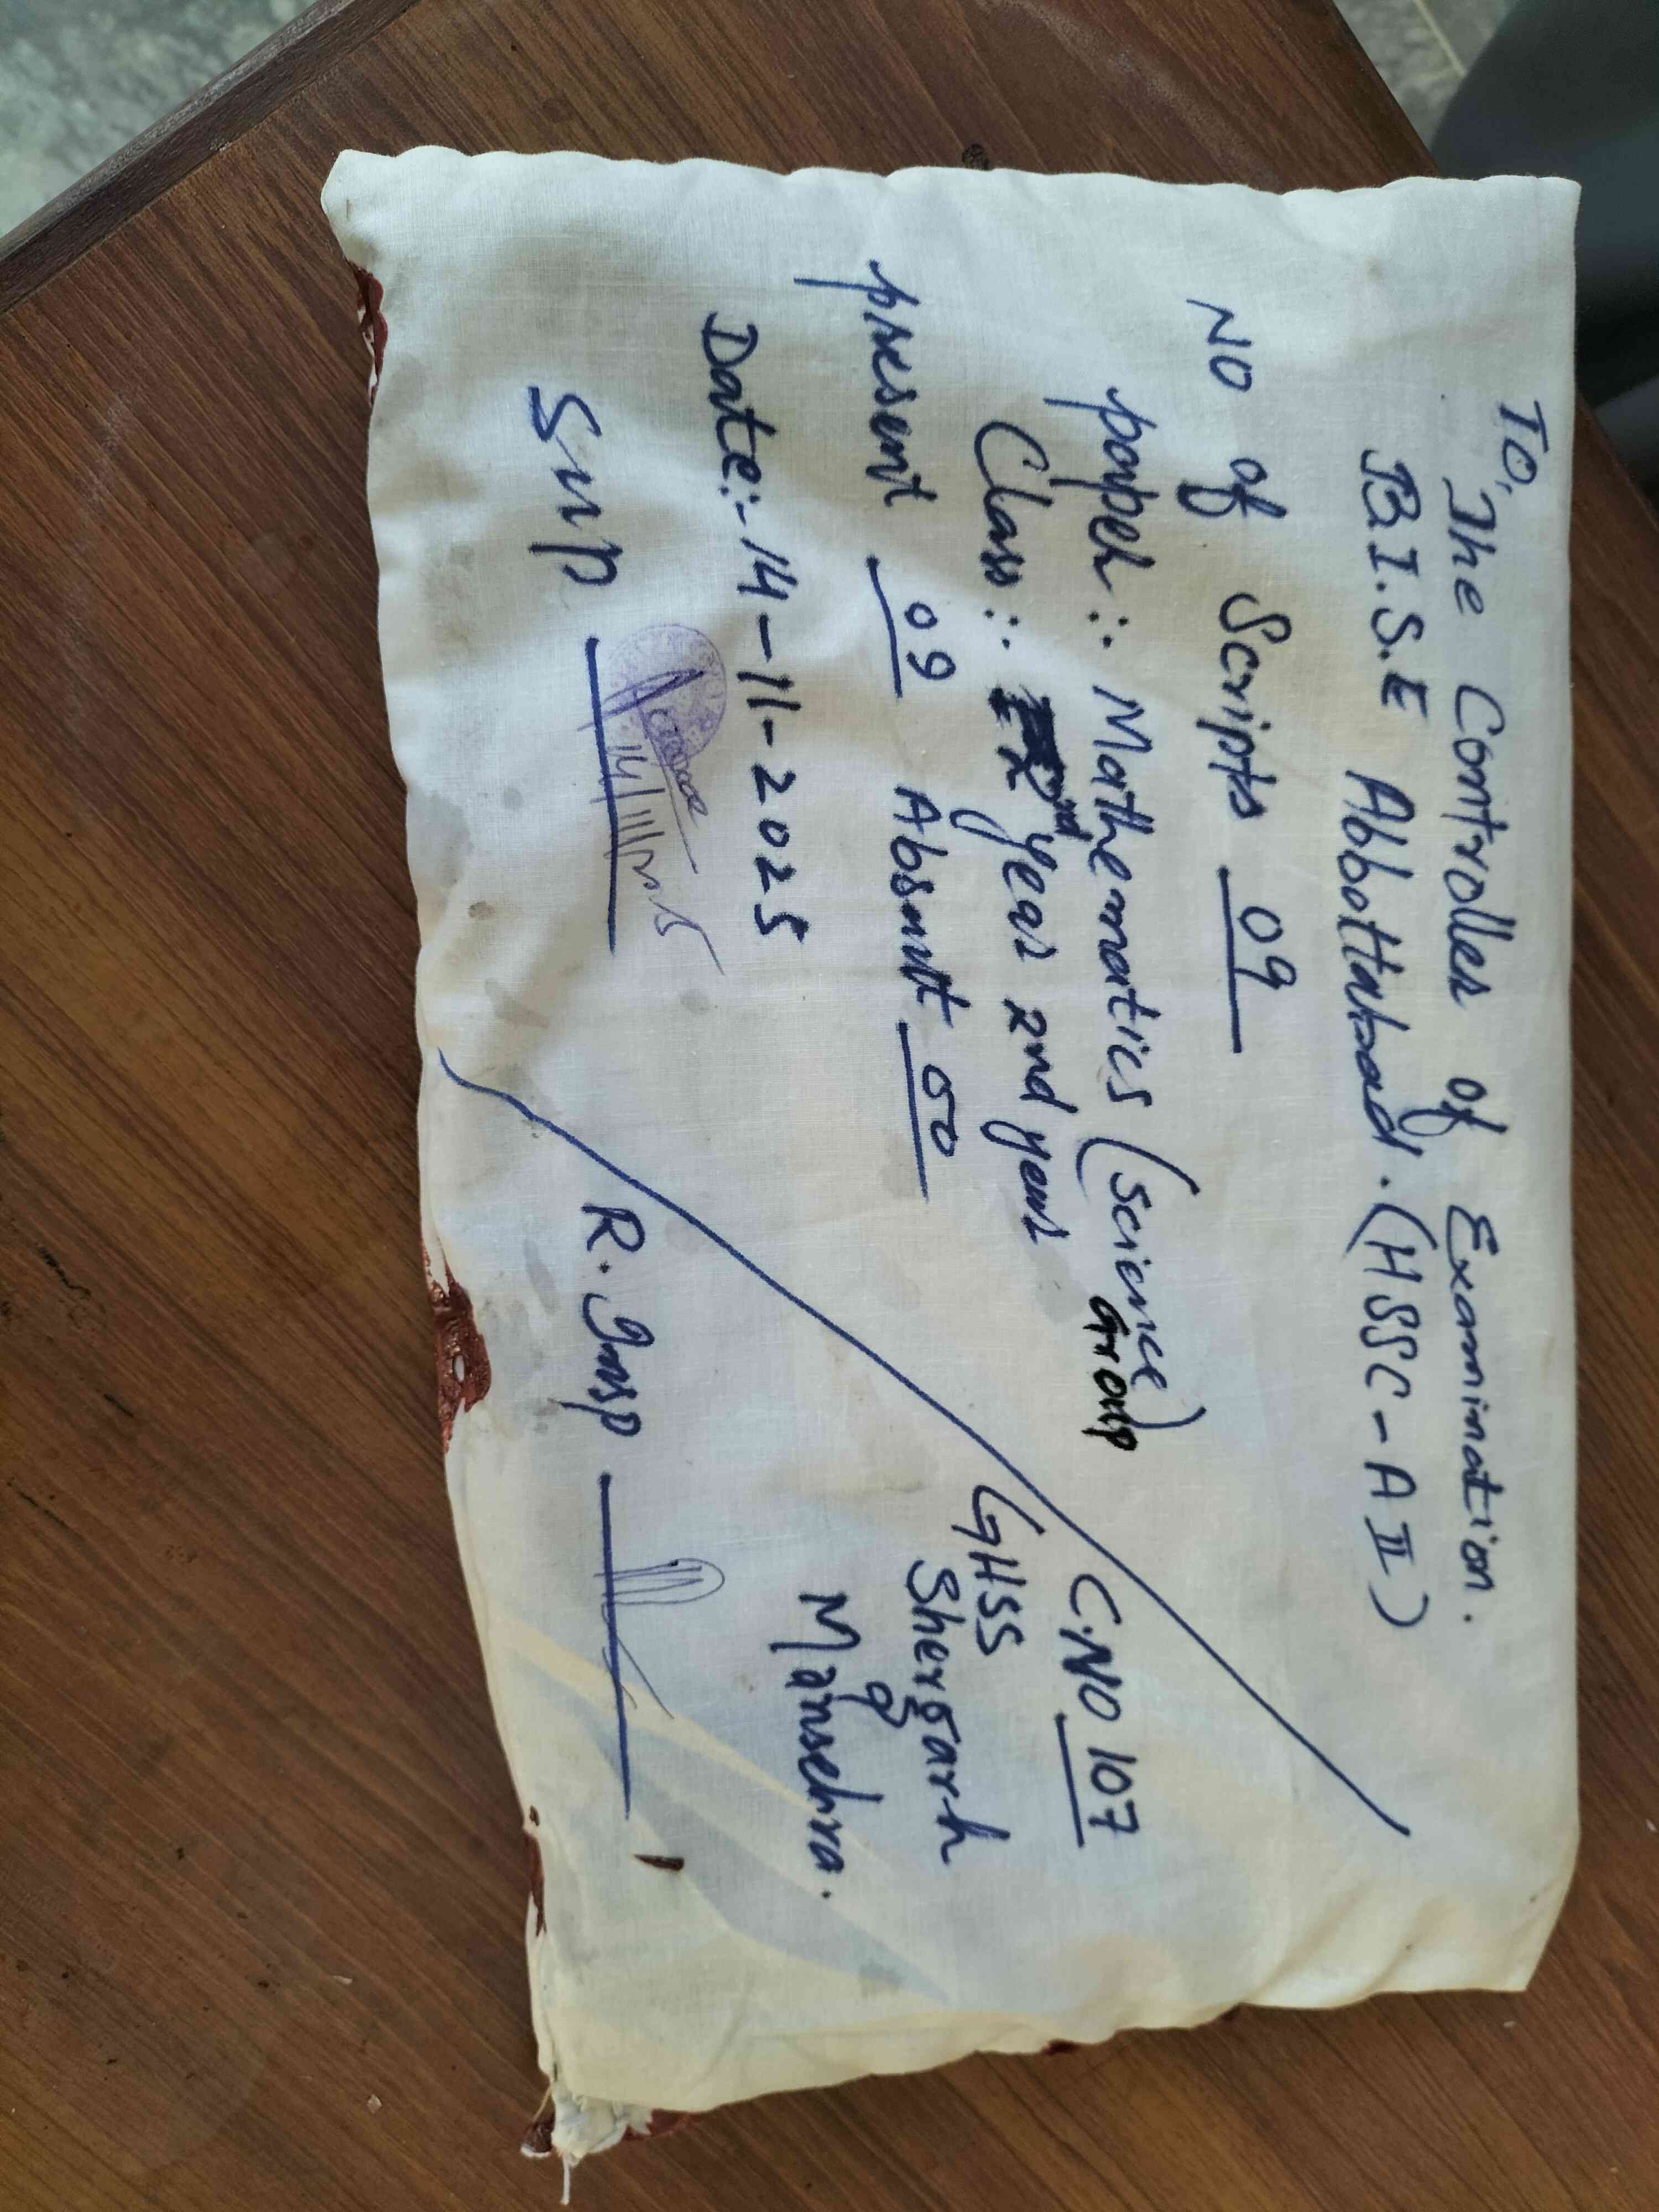 To,
The Controller of Examination.
B.I.S.E Abbottabad. (HSSC-A II)
NO of Scripts 09
paper:. Mathematics (Science)
Group
Class:. year 2nd year
present 09 Absent 00
Date:-14-11-2025
Sup 14/11/2025
R. Insp
C.NO 107
GHSS
Shergarh
Mansehra.